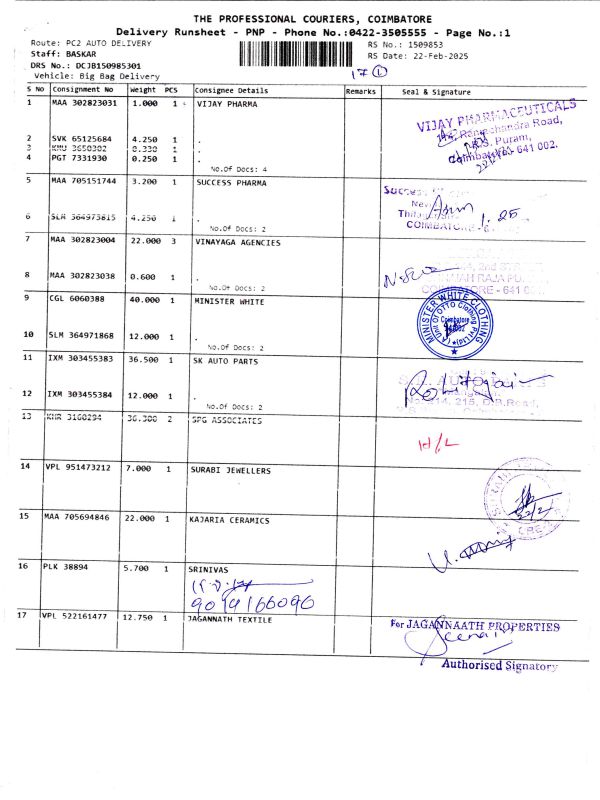 THE PROFESSIONAL COURIERS, COIMBATORE
Delivery Runsheet - PNP - Phone No.:0422-3505555 - Page No.:1
Route: PC2 AUTO DELIVERY RS No.: 1509853
Staff: BASKAR RS Date: 22-Feb-2025
DRS No.: DCJB150985301
Vehicle: Big Bag Delivery 17 1
S No Consignment No Weight PCS Consignee Details Remarks Seal & Signature
1 MAA 302823031 1.000 1 VIJAY PHARMA
VIJAY PHARMACEUTICALS
Ramachandra Road,
R.S. Puram,
Coimbatore 641 002.
2 SVK 65125684 4.250 1 .
3 KMU 3650382 0.330 1 .
4 PGT 7331930 0.250 1 .
No.Of Docs: 4
5 MAA 705151744 3.200 1 SUCCESS PHARMA
Success
COIMBATORE
6 SLM 364973815 4.250 1 .
No.Of Docs: 2
7 MAA 302823004 22.000 3 VINAYAGA AGENCIES
8 MAA 302823038 0.600 1 .
No.Of Docs: 2
9 CGL 6060388 40.000 1 MINISTER WHITE
MINISTER WHITE CLOTHING
Coimbatore
10 SLM 364971868 12.000 1 .
No.Of Docs: 2
11 IXM 303455383 36.500 1 SK AUTO PARTS
12 IXM 303455384 12.000 1 .
No.Of Docs: 2
13 KHR 3160294 36.300 2 SPG ASSOCIATES
14 VPL 951473212 7.000 1 SURABI JEWELLERS
15 MAA 705694846 22.000 1 KAJARIA CERAMICS
16 PLK 38894 5.700 1 SRINIVAS
17 VPL 522161477 12.750 1 JAGANNATH TEXTILE
For JAGANNAATH PROPERTIES
Authorised Signatory